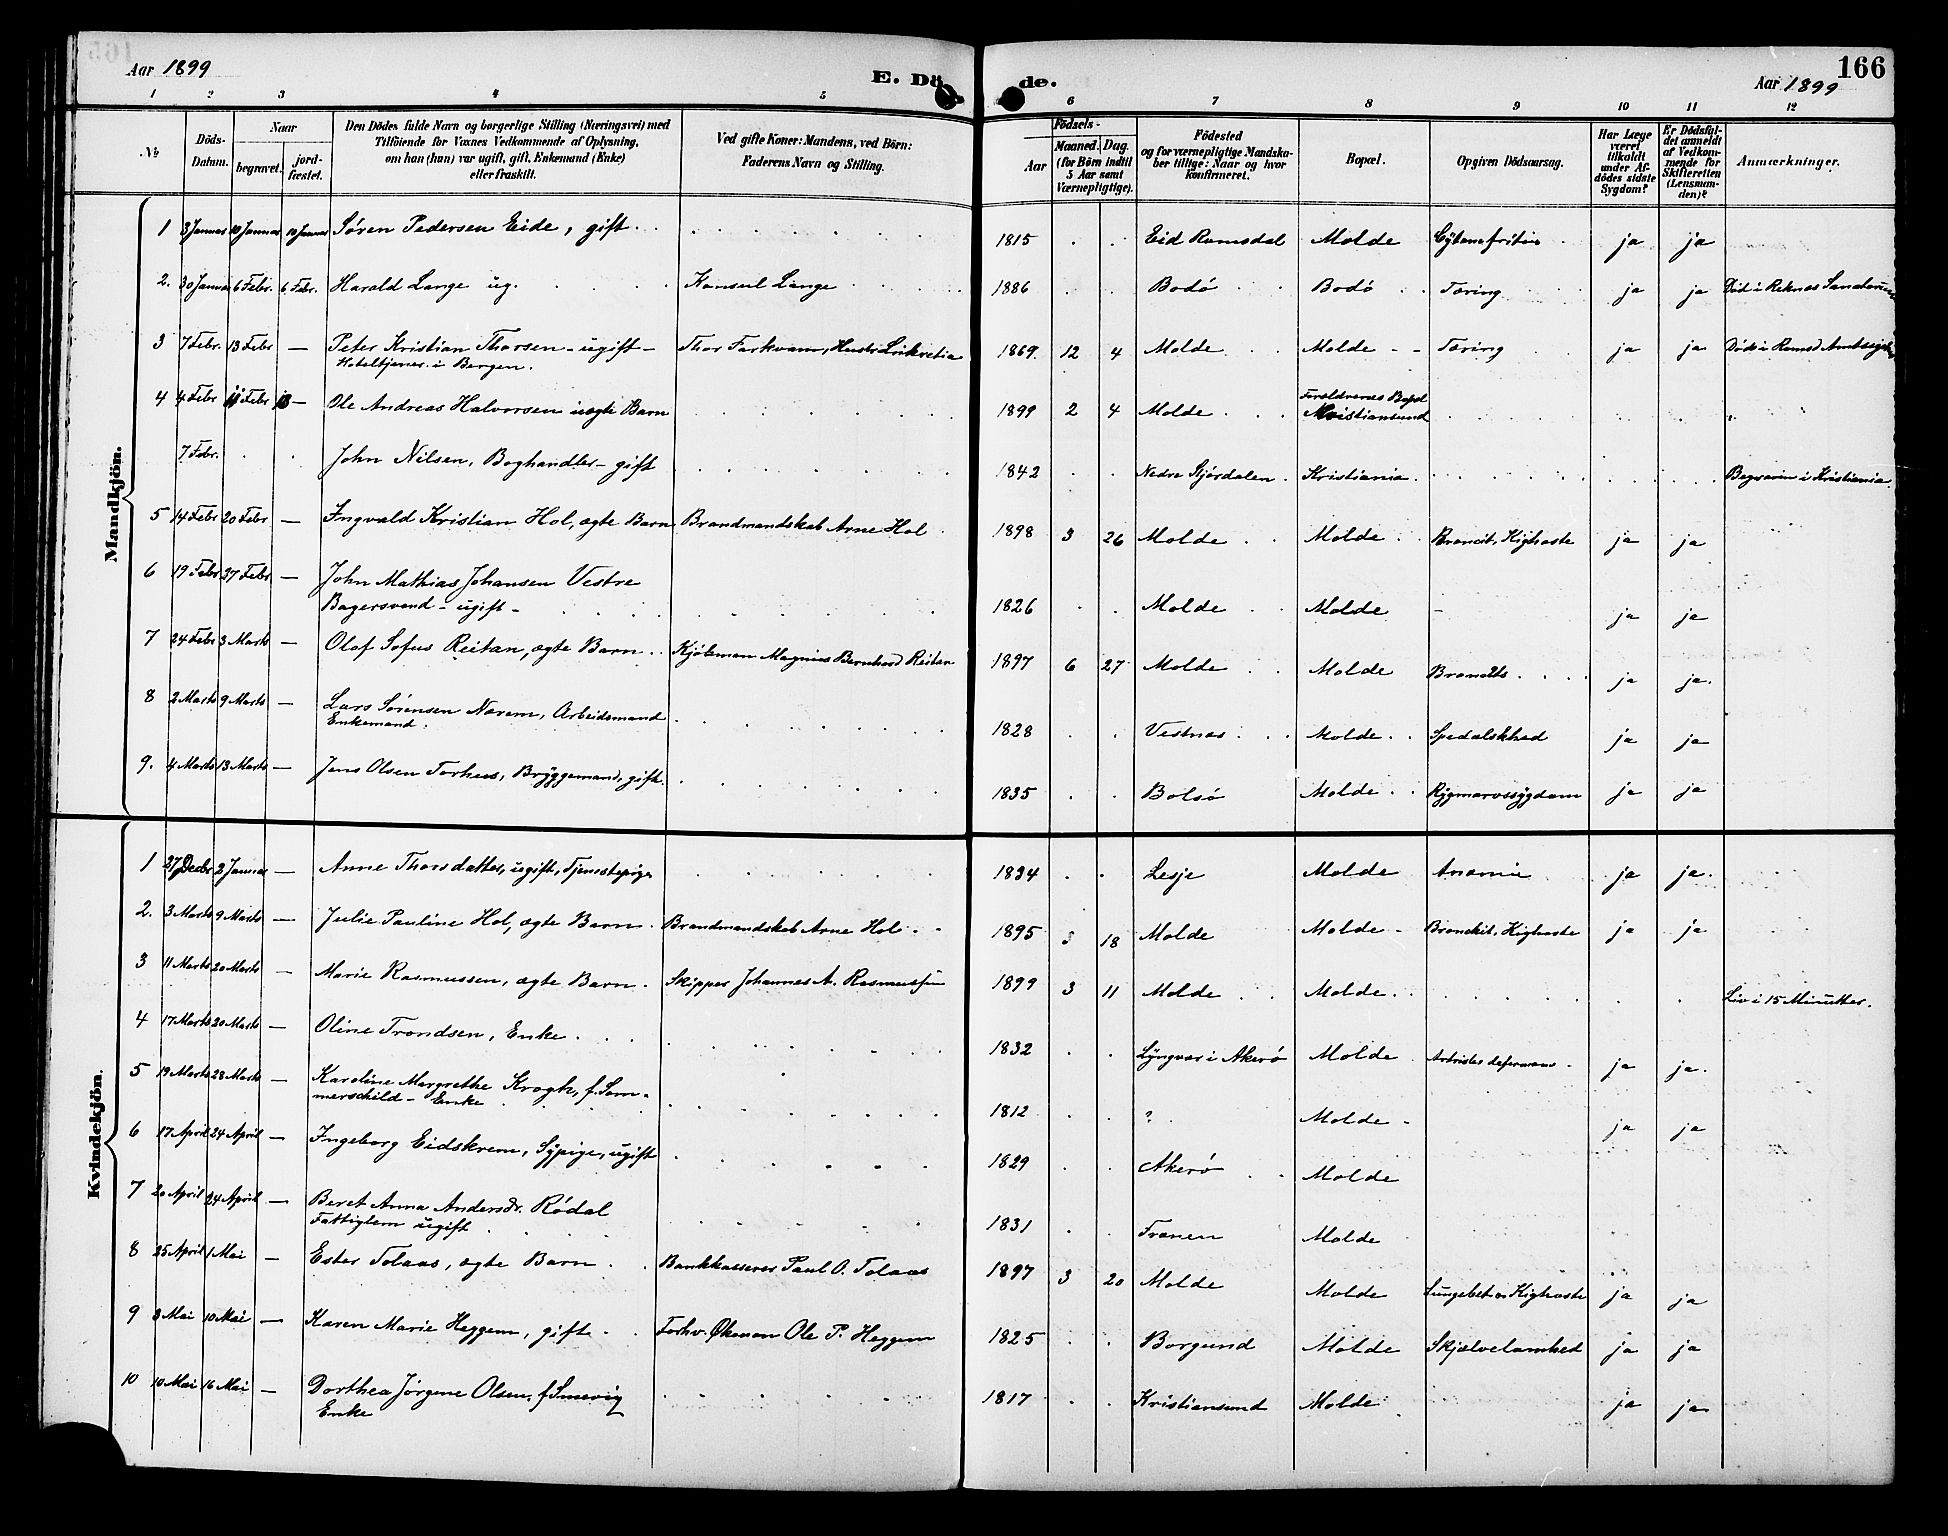 Aar 1899
E. Dö de.
Aar 1899
166
1 2 3 4 5 6 7 8 9 10 11 12
No
Döds-Datum.
Naar
begravet.
jord-fæstet.
Den Dödes fulde Navn og borgerlige Stilling (Næringsvei) med
Tilföiende for Voxnes Vedkommende af Oplysning,
om han (hun) var ugift, gift, Enkemand (Enke)
eller fraskilt.
Ved gifte Koner: Mandens, ved Börn:
Faderens Navn og Stilling.
Födsels-
Aar
Maaned. Dag.
(for Börn indtil
5 Aar samt
Værnepligtige).
Födested
og for værnepligtige Mandska-
ber tillige: Naar og hvor
konfirmeret.
Bopæl.
Opgiven Dödsaarsag.
Har Læge
været
tilkaldt
under Af-
dödes sidste
Sygdom?
Er Dödsfal-
det anmeldt
af Vedkom-
mende for
Skifteretten
(Lensman-
den)?
Anmærkninger.
Mandkjön.
1 3 Januar 10 Januar 10 Januar Søren Pedersen Eide, gift 1815 Eid Romsdal Molde ja ja
2. 30 Januar 6 Febr. 6 Febr. Harald Lange ug. Konsul Lange 1886 Bodø Bodø Tæring ja ja Död i Reknæs Sanatorium
3 7 Febr. 13 Febr — Peter Kristian Thorsen - ugift - Thor Farkvam, 1869. 12 4 Molde Molde Tæring ja ja Döde i Romsd Amtssygeh
Hoteltjener i Bergen.
4 4 Febr 11 Febr — Ole Andreas Halvorsen uægte Barn 1899 2 4 Molde Forældrenes Bopæl
Kristiansund
7 Febr. John Nilsen, Boghandler - gift 1842 Nedre Stjørdalen Kristiania Begraven i Kristiania
5 14 Febr 20 Febr — Ingvald Kristian Hol, ægte Barn Brandmandskab Arne Hol 1898 3 26 Molde Molde Broncit, Kighoste ja ja
6 19 Febr 27 Febr — John Mathias Johansen Vestre
Bagersvend - ugift - 1826 Molde Molde - ja ja
7 24 Febr 3 Marts — Olaf Sofus Reitan, ægte Barn Kjöbman Magnus Bernhard Reitan 1897 6 27 Molde Molde ja ja.
8 2 Marts 9 Marts — Lars Sørensen Norem, Arbeidsmand
Enkemand. 1828 Vestnes Molde Spedalskhed ja ja
9. 4 Marts 13 Marts — Jens Olsen Torhus, Bryggemand, gift. 1835 Bolsø Molde Rygmarvssygdom ja ja
Kvindekjön.
1 27 Decbr 2 Januar — Anne Thorsdatter, ugift, Tjenestepige 1834 Lesje Molde Anæmie ja ja.
2. 3 Marts 9 Marts — Julie Pauline Hol, ægte Barn Brandmandskab Arne Hol 1895 3 18 Molde Molde Bronchit, Kighoste ja ja
3 11 Marts 20 Marts — Marie Rasmussen, ægte Barn Skipper Johannes A. Rasmussen 1899 3 11 Molde Molde Liv i 15 Minutter.
4 17 Marts 20 Marts — Oline Trondsen, Enke 1832 Lyngvær i Akerø Molde Artrites deformans ja ja.
5 19 Marts 28 Marts — Karoline Margrethe Krogh, f. Som-
merschild - Enke 1812 ? Molde ja ja
6 17 April 24 April — Ingeborg Eidskrem, Sypige, ugift 1829 Akerø Molde
7 20 April 24 April — Beret Anna Andersdr. Rødal
Fattiglem ugift 1831 Frænen Molde
8 25 April 1 Mai — Ester Tolaas, ægte Barn Bankkasserer Paul O. Tolaas 1897 3 20 Molde Molde Lungebet. Kighoste ja ja
9 3 Mai 10 Mai — Karen Marie Heggem, gift Forhv. Økonom Ole P. Heggem 1825 Borgund Molde ja ja
10 10 Mai 16 Mai — Dorthea Jørgene Olsen, f. Smevig
Enke 1817 Kristiansund Molde ja ja